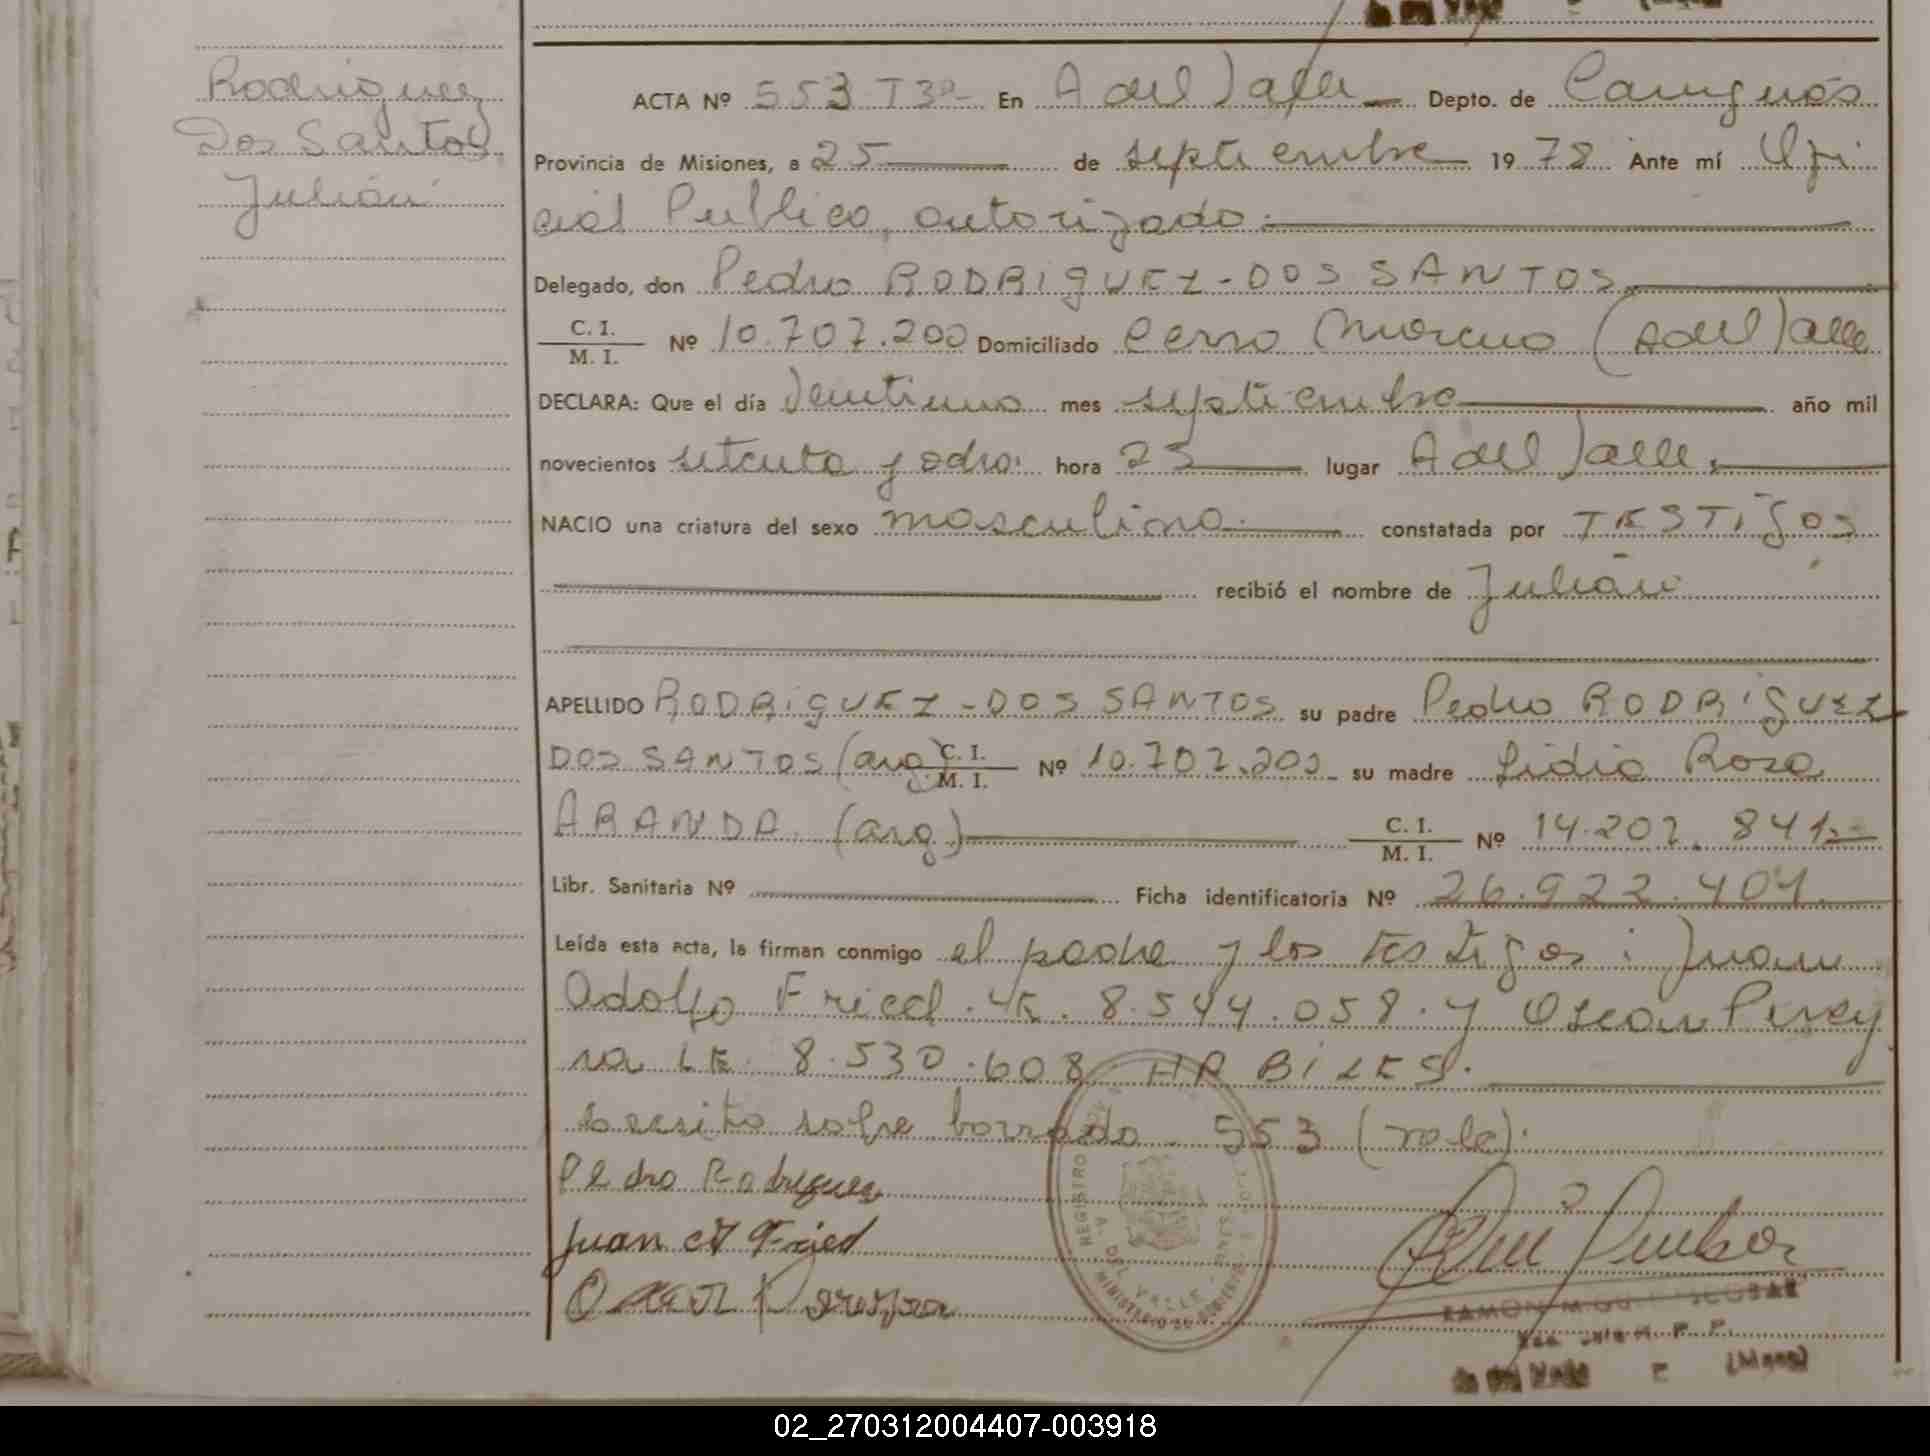 Rodriguez
Dos Santos
Julián
ACTA Nº 553 T3º En A del Valle Depto. de Cainguás
Provincia de Misiones, a 25 de septiembre 1978 Ante mí Ofi
cial Publico, autorizado.
Delegado, don Pedro RODRIGUEZ-DOS SANTOS
C. I.
M. I. Nº 10.707.200 Domiciliado Cerro Moreno (A del Valle
DECLARA: Que el día mes septiembre año mil
novecientos setenta y ocho. hora 23 lugar A del Valle.
NACIO una criatura del sexo masculino. constatada por TESTIGOS
recibió el nombre de Julián
APELLIDO RODRIGUEZ-DOS SANTOS su padre Pedro RODRIGUEZ
DOS SANTOS (arg) C. I.
M. I. Nº 10.707.200 su madre Lidia Rosa
ARANDA (arg) C. I.
M. I. Nº 14.207.841
Libr. Sanitaria Nº Ficha identificatoria Nº 26.922.401.
Leída esta acta, la firman conmigo el padre y los testigos: Juan
Adolfo Fried. LE. 8.544.058. y Oscar Perey
ra LE. 8.530.608 HABILES.
Escrito sobre borrado 553 (vale).
Pedro Rodriguez
Juan A Fried
Oscar Pereyra
REGISTRO
A. DEL VALLE
MINISTERIO DE GOBIERNO
RAMON MIGUEL ESCOBAR
(Mnes)
02_270312004407-003918